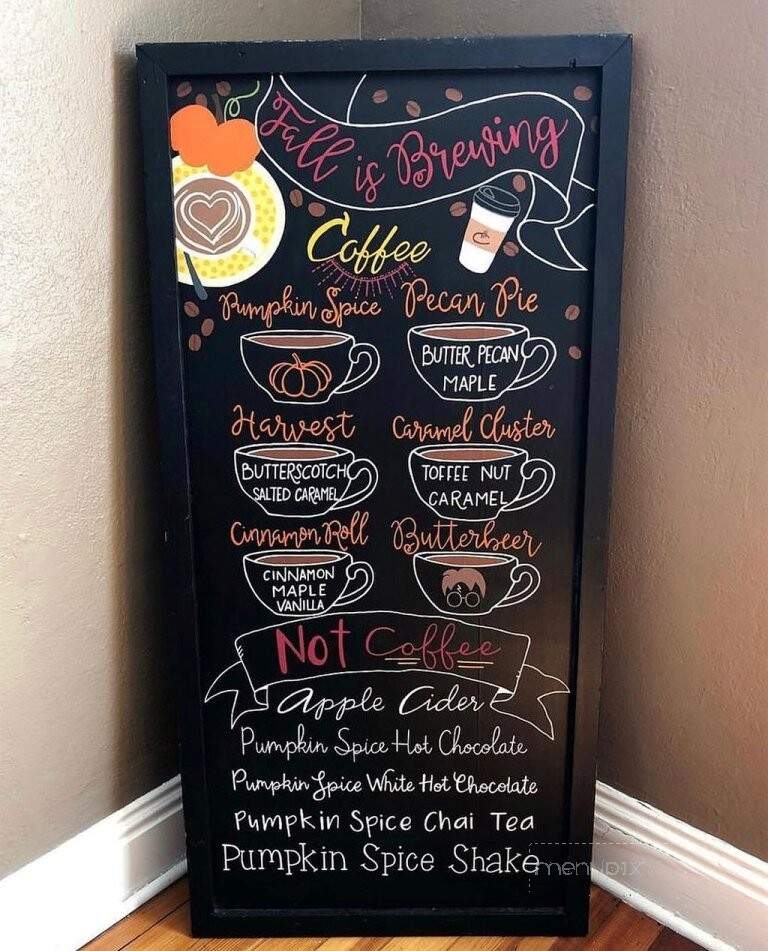 Fall is Brewing
Coffee
Pumpkin Spice
Pecan Pie
BUTTER PECAN
MAPLE
Harvest
BUTTERSCOTCH
SALTED CARAMEL
Caramel Cluster
TOFFEE NUT
CARAMEL
Cinnamon Roll
CINNAMON
MAPLE
VANILLA
Butterbeer
NOT Coffee
Apple Cider
Pumpkin Spice Hot Chocolate
Pumpkin Spice White Hot Chocolate
Pumpkin Spice Chai Tea
Pumpkin Spice Shake
menupix